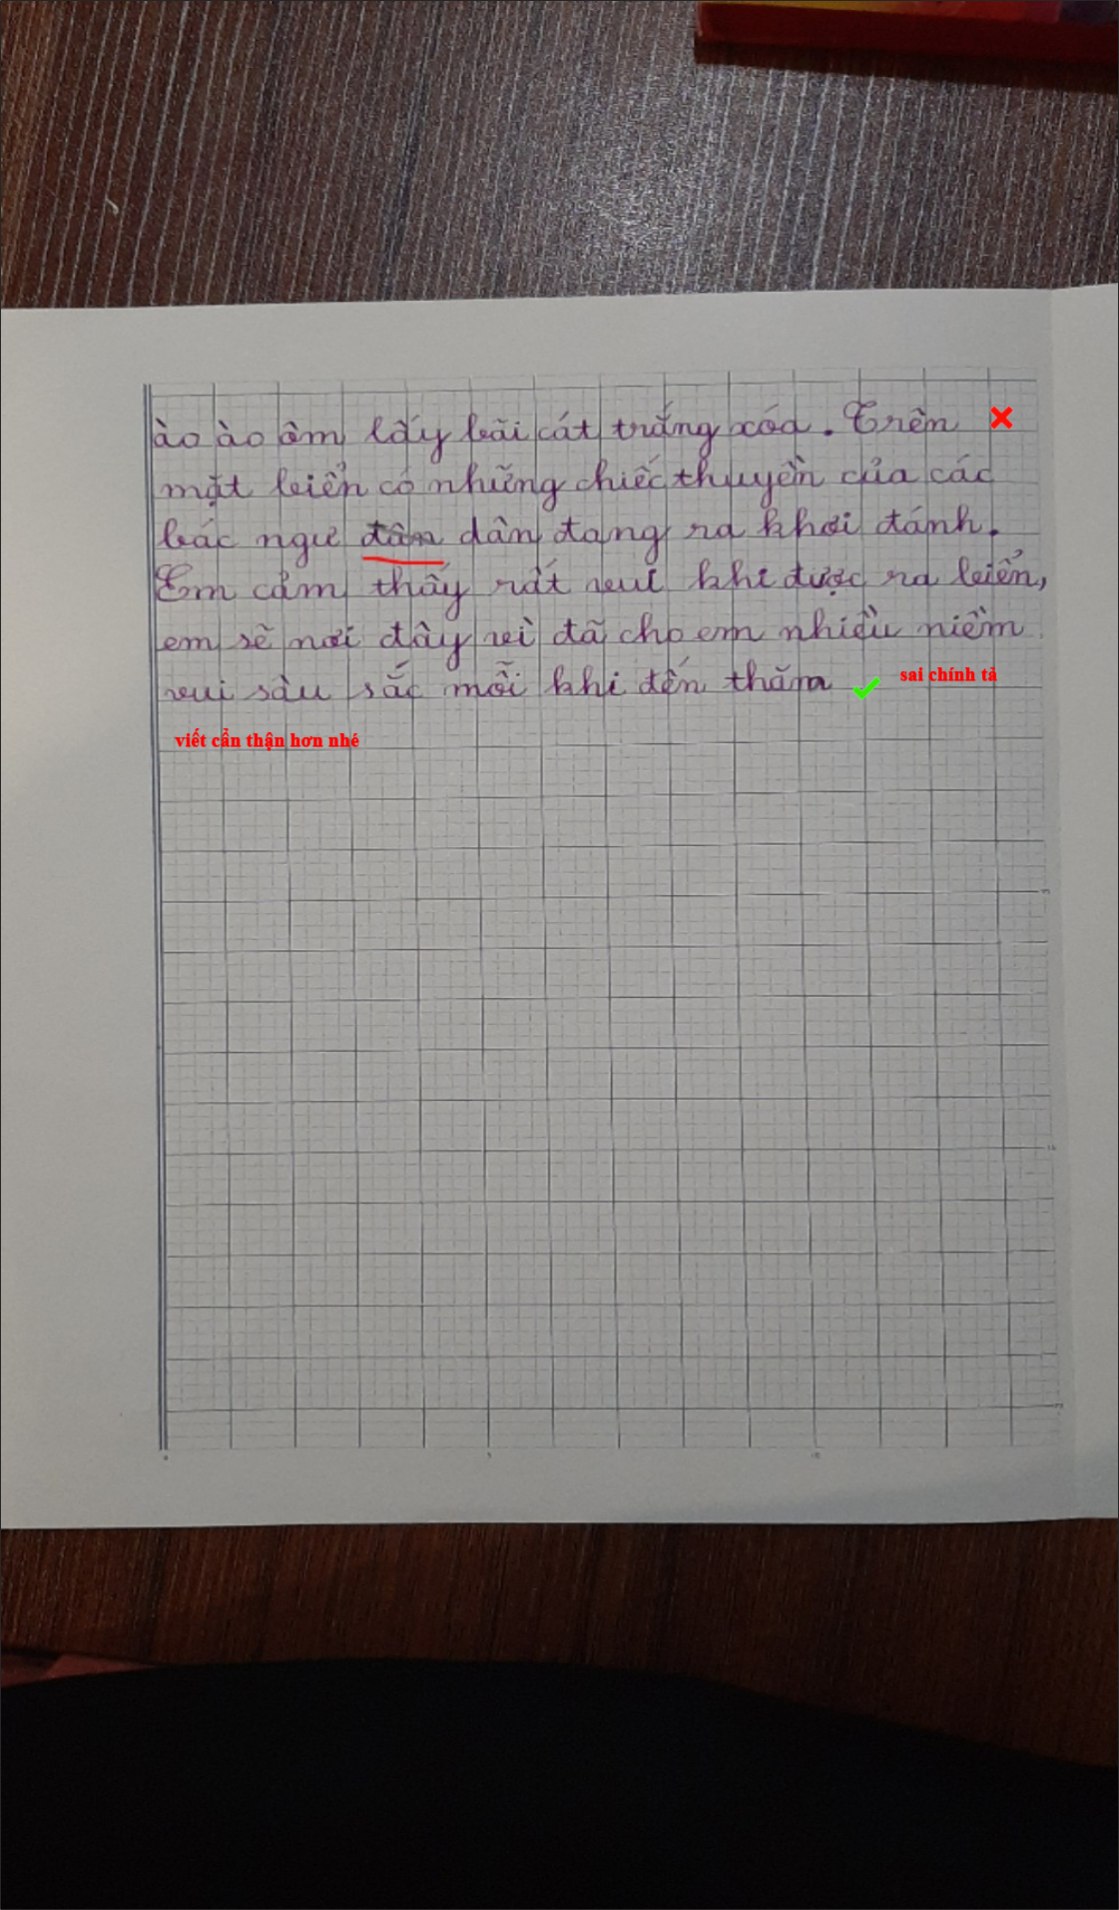 ào ào ôm lấy bãi cát trắng xóa. Trên
mặt biển có những chiếc thuyền của các
bác ngư dân đang ra khơi đánh.
Em cảm thấy rất vui khi được ra biển,
em sẽ nơi đây vì đã cho em nhiều niềm
vui sâu sắc mỗi khi đến thăm
sai chính tả
viết cẩn thận hơn nhé